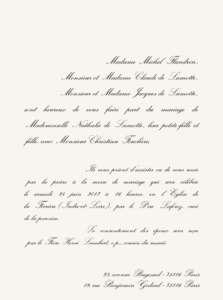 Madame Michel Flandrin,
Monsieur et Madame Claude de Lamotte,
Monsieur et Madame Jacques de Lamotte,
sont heureux de vous faire part du mariage de
Mademoiselle Nathalie de Lamotte, leur petite-fille et
fille, avec Monsieur Christian
Ils vous prient d'assister ou de vous unir
par la prière à la messe de mariage qui sera célébrée
le samedi 24 juin 2007 à 16 heures, en l'Église de
la Ferrière (Indre-et-Loire), par le Père
de la paroisse.
Le consentement des époux sera reçu
par le Père Hervé o.p., cousin du marié.
avenue 75016 Paris
18 rue Benjamin Godard - 75016 Paris